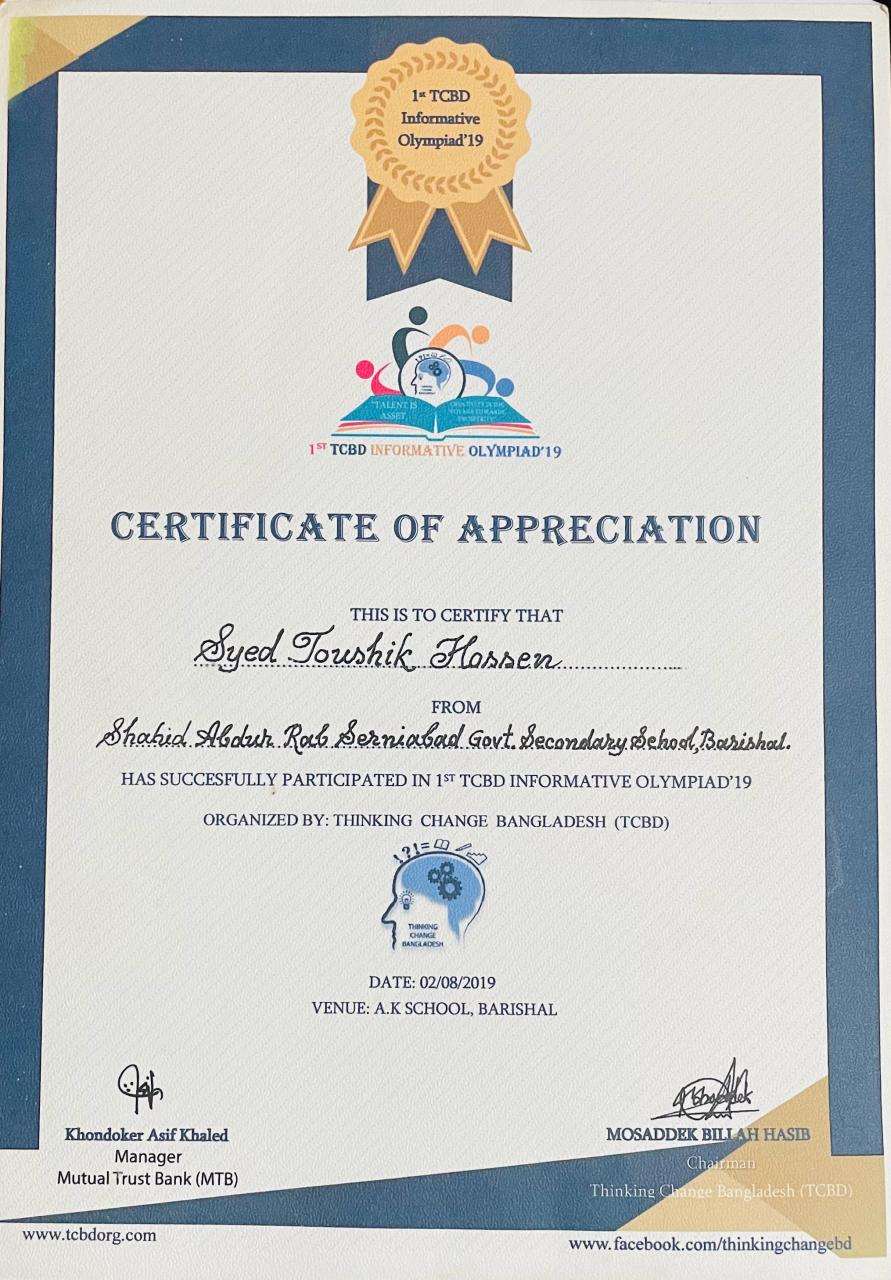 1st TCBD
Informative
Olympiad'19
!?!=
"TALENT IS
ASSET,
CREATIVITY IS THE
VOYAGE TOWARDS
PROSPERITY"
1ST TCBD INFORMATIVE OLYMPIAD'19
CERTIFICATE OF APPRECIATION
THIS IS TO CERTIFY THAT
Syed Toushik Hossen
FROM
Shahid Abdur Rab Serniabad Govt. Secondary School, Barishal.
HAS SUCCESFULLY PARTICIPATED IN 1ST TCBD INFORMATIVE OLYMPIAD'19
ORGANIZED BY: THINKING CHANGE BANGLADESH (TCBD)
!?!=
THINKING
CHANGE
BANGLADESH
DATE: 02/08/2019
VENUE: A.K SCHOOL, BARISHAL
Khondoker Asif Khaled
Manager
Mutual Trust Bank (MTB)
MOSADDEK BILLAH HASIB
Chairman
Thinking Change Bangladesh (TCBD)
www.tcbdorg.com
www.facebook.com/thinkingchangebd